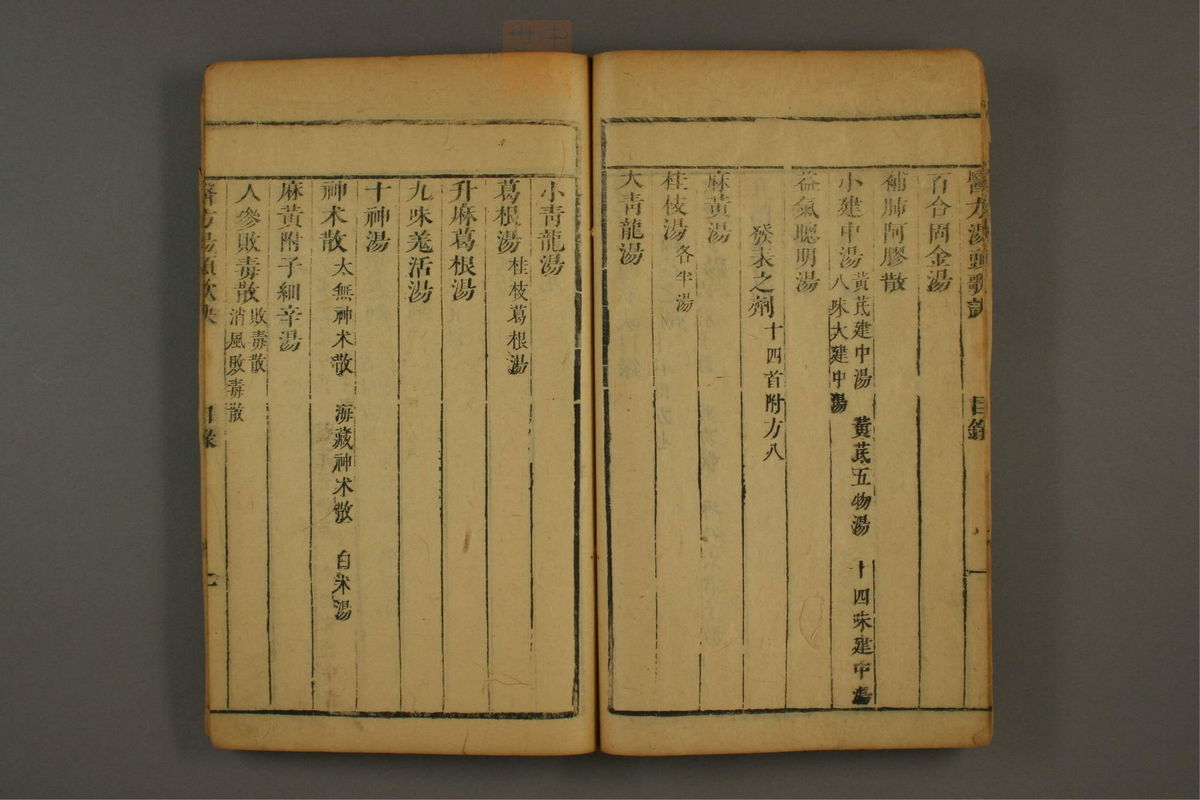 醫方湯頭歌訣 目錄 一
百合固金湯
補肺阿膠散
小建中湯 黃芪建中湯 黃芪五物湯 十四味建中湯
八味大建中湯
益氣聰明湯
發表之劑 十四首附方八
麻黃湯
桂枝湯 各半湯
大青龍湯
小青龍湯
葛根湯 桂枝葛根湯
升麻葛根湯
九味羗活湯
十神湯
神术散 太無神术散 海藏神术散 白术湯
麻黃附子細辛湯
人參敗毒散 敗毒散
消風敗毒散
醫方湯頭歌訣 目錄